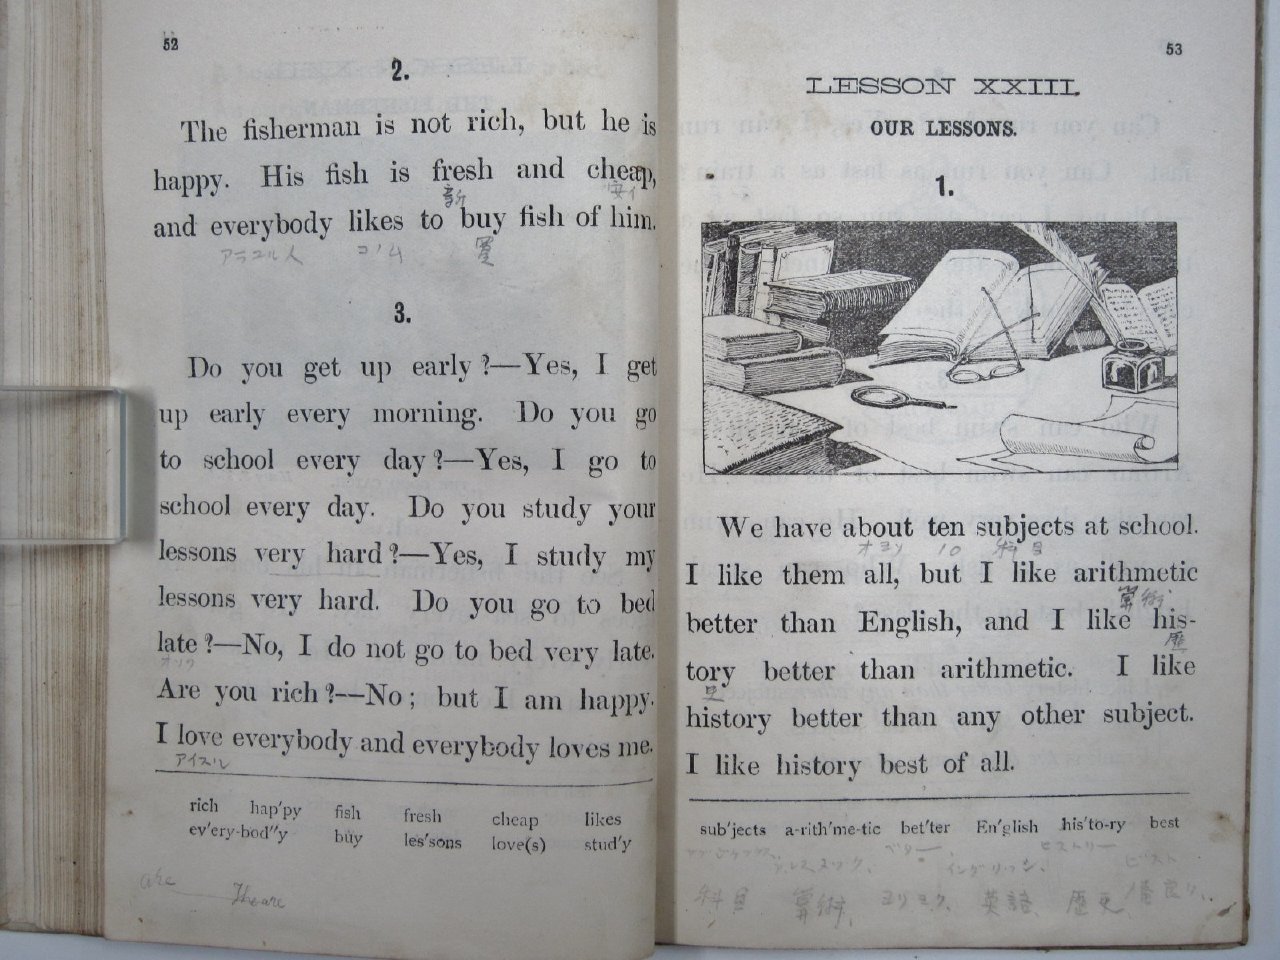 52
2.
The fisherman is not rich, but he is
happy. His fish is fresh and cheap,
新 安イ
and everybody likes to buy fish of him.
アラユル人 コノム 買
3.
Do you get up early?—Yes, I get
up early every morning. Do you go
to school every day?—Yes, I go to
school every day. Do you study your
lessons very hard?—Yes, I study my
lessons very hard. Do you go to bed
late?—No, I do not go to bed very late.
オソク
Are you rich?—No; but I am happy.
I love everybody and everybody loves me.
アイスル
rich hap'py fish fresh cheap likes
ev'ery-bod"y buy les'sons love(s) stud'y
53
LESSON XXIII.
OUR LESSONS.
1.
We have about ten subjects at school.
オヨソ 10 科目
I like them all, but I like arithmetic
算術
better than English, and I like his-
歴
tory better than arithmetic. I like
史
history better than any other subject.
I like history best of all.
sub'jects a-rith'me-tic bet'ter En'glish his'to-ry best
ベター ヒストリー
イングリッシ ビスト
科目 算術 ヨリヨク 英語 歴史